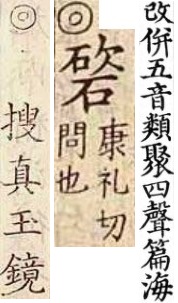 改併五音類聚四聲篇海
◎
康礼切
問也
◎
搜真玉鏡